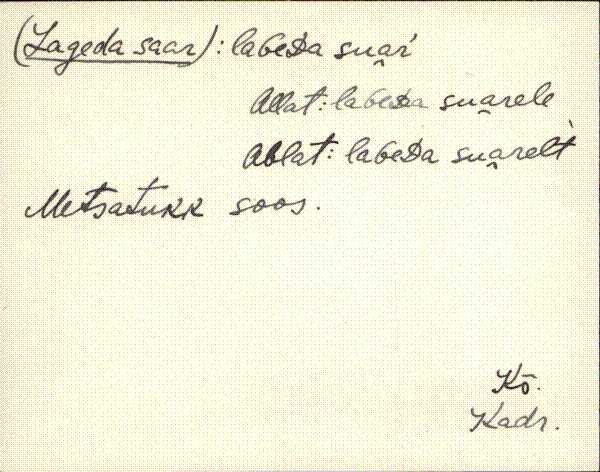 (Lageda saar): laɢeᴅa su̯ar̀
Allat: laɢeᴅa su̯arele
Ablat: laɢeᴅa su̯arelt̀
Metsatukk soos.
Kõ.
Kadr.